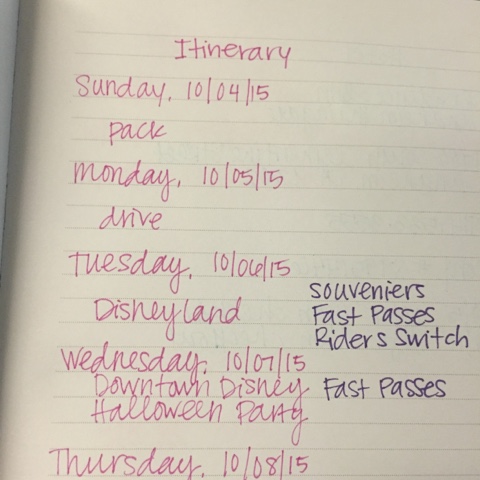 Itinerary
Sunday, 10/04/15
pack
Monday, 10/05/15
drive
Tuesday, 10/06/15
souveniers
Disneyland Fast Passes
Riders Switch
Wednesday, 10/07/15
Downtown Disney Fast Passes
Halloween Party
Thursday, 10/08/15